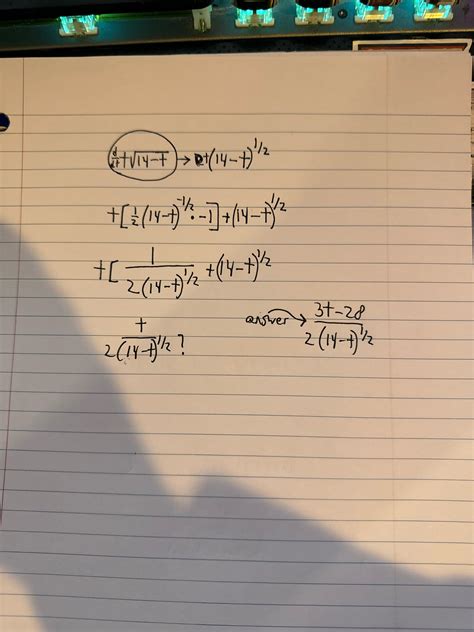 d/dt t√14-t → t(14-t)^1/2
t[1/2(14-t)^-1/2 · -1]+(14-t)^1/2
t[1/2(14-t)^1/2 +(14-t)^1/2
t/2(14-t)^1/2 ? answer → 3t-28/2(14-t)^1/2